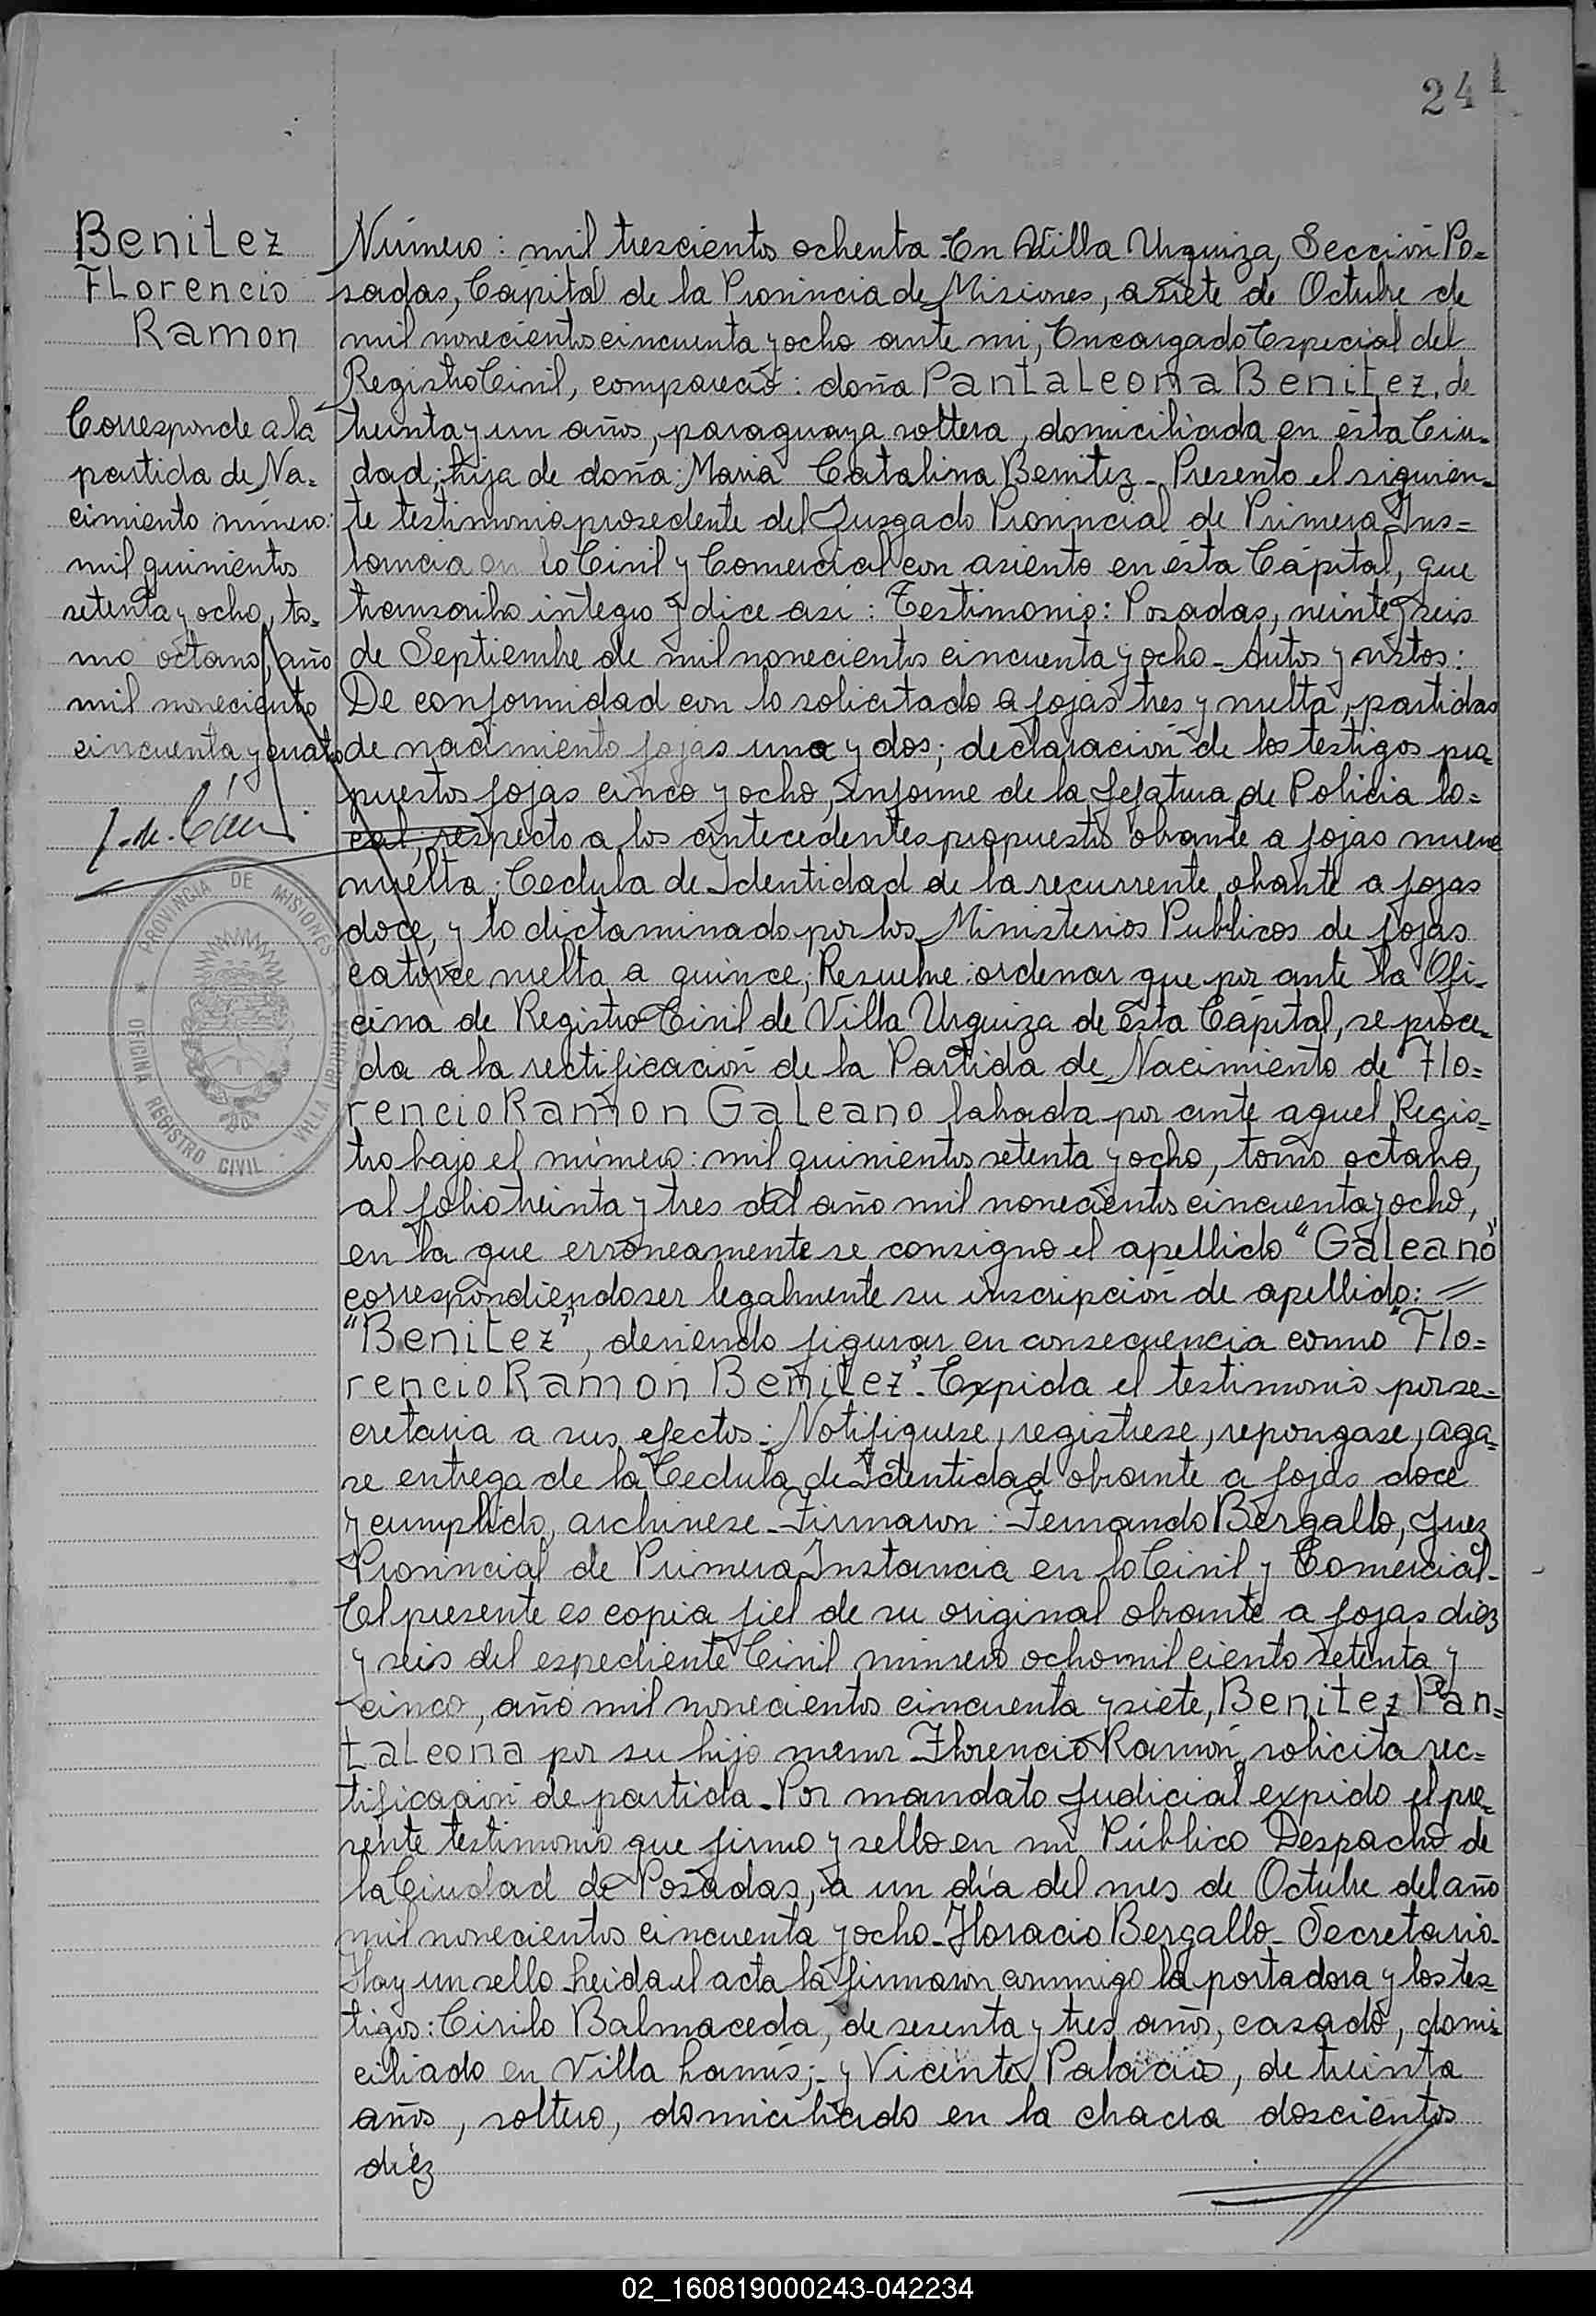 241
Benitez
Florencio
Ramon
Corresponde a la
partida de Na=
cimiento número:
mil quinientos
setenta y ocho, to=
mo octavo, año
mil novecientos
cincuenta y cuatro
PROVINCIA DE MISIONES
OFICINA REGISTRO CIVIL - VILLA URQUIZA
Número: mil trescientos ochenta. En Villa Urquiza, Sección Po=
sadas, Cápital de la Provincia de Misiones, a siete de Octubre de
mil novecientos cincuenta y ocho ante mi, Encargado Especial del
Registro Civil, compareció: doña Pantaleona Benitez, de
treinta y un años, paraguaya soltera, domiciliada en ésta Ciu=
dad; hija de doña: Maria Catalina Benitez - Presento el siguien=
te testimonio prosedente del Jusgado Provincial de Primera Ins=
tancia en lo Civil y Comercial con asiento en ésta Cápital, que
transcribo integro y dice asi: Testimonio: Posadas, veinte y seis
de Septiembre de mil novecientos cincuenta y ocho - Autos y vistos:
De conformidad con lo solicitado a fojas tres y vuelta, partidas
de nacimiento fojas uno y dos; declaración de los testigos pro=
puestos fojas cinco y ocho, informe de la Jefatura de Policia lo=
cal; respecto a los antecedentes propuestos obrante a fojas nueve
vuelta; Cedula de Identidad de la recurrente, obrante a fojas
doce, y lo dictaminado por los Ministerios Publicos de fojas
catorce vuelta a quince; Resuelve: ordenar que por ante la Ofi=
cina de Registro Civil de Villa Urquiza de ésta Cápital, se proce=
da a la rectificación de la Partida de Nacimiento de "Flo=
rencio Ramon Galeano labrada por ante aquel Regis=
tro bajo el número: mil quinientos setenta y ocho, tomo octavo,
al folio treinta y tres del año mil novecientos cincuenta y ocho,
en la que erroneamente se consigno el apellido "Galeano"
correspondiendoser legalmente su inscripción de apellido: =
"Benitez", deviendo figurar en consecuencia como "Flo=
rencio Ramón Benitez". Expida el testimonio por se=
cretaria a sus efectos. Notifiquese, registrese, repongase, aga=
se entrega de la Cedula de Identidad obrante a fojas doce
y cumplido, archivese - Firmaron: Fernando Bergallo, Juez
Provincial de Primera Instancia en lo Civil y Comercial -
El presente es copia fiel de su original obrante a fojas diez
y seis del espediente Civil número ocho mil ciento setenta y
cinco, año mil novecientos cincuenta y siete, Benitez Pan=
taleona por su hijo menor Florencio Ramón, solicita rec=
tificación de partida. Por mandato Judicial expido el pre=
sente testimonio que firmo y sello en mi Público Despacho de
la Ciudad de Posadas, a un día del mes de Octubre del año
mil novecientos cincuenta y ocho - Horacio Bergallo - Secretario -
Hay un sello. Leida el acta la firmaron conmigo la portadora y los tes=
tigos: Cirilo Balmaceda, de sesenta y tres años, casado, domi=
ciliado en Villa Lanus; - y Vicente Palacios, de treinta
años, soltero, domiciliado en la chacra doscientos
diéz
02_160819000243-042234